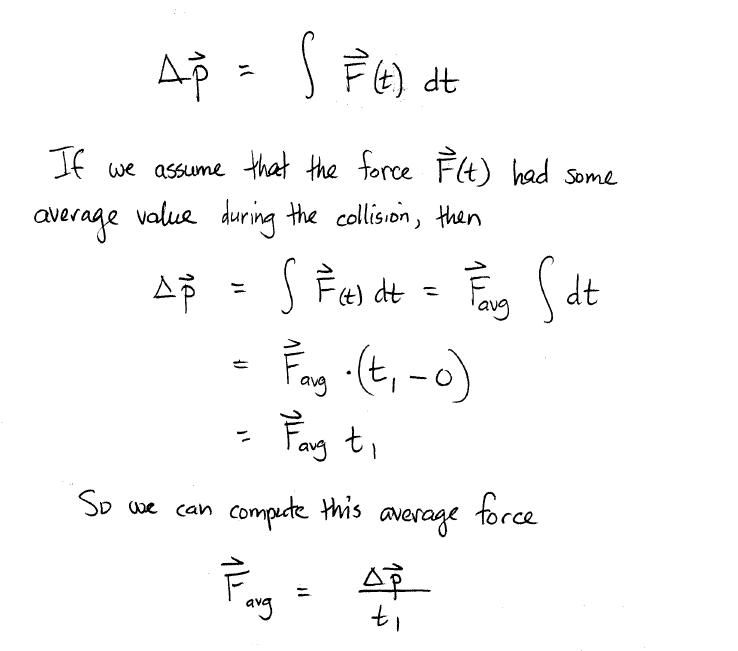 Δp⃗ = ∫ F⃗(t) dt
If we assume that the force F⃗(t) had some
average value during the collision, then
Δp⃗ = ∫ F⃗(t) dt = F⃗avg ∫ dt
= F⃗avg · (t₁ − 0)
= F⃗avg t₁
So we can compute this average force
F⃗avg = Δp⃗ / t₁